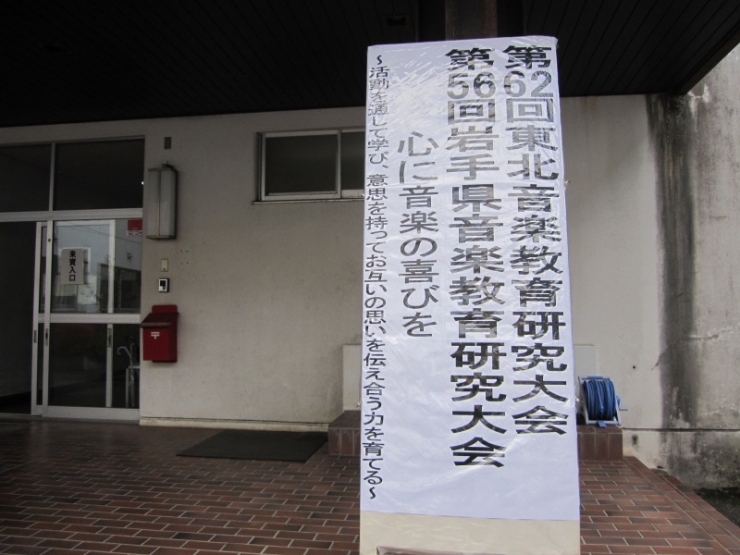 第62回東北音楽教育研究大会
第56回岩手県音楽教育研究大会
心に音楽の喜びを
~活動を通して学び、意思を持ってお互いの思いを伝え合う力を育てる~
来賓入口
〒